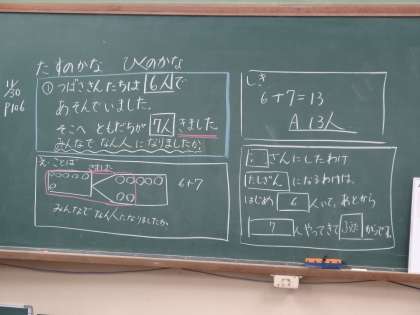 たすのかな ひくのかな
11/30
P106
① つばささんたちは 6人で
あそんでいました。
そこへ ともだちが 7人 きました
みんなで なん人に なりましたか。
しき
6+7=13
A 13人
え・ことば
きました
6+7
みんなで なん人に なりましたか。
ざんにしたわけ
たしざん になるわけは、
はじめ 6 人いて、あとから
7 人やってきて ふえた からです。